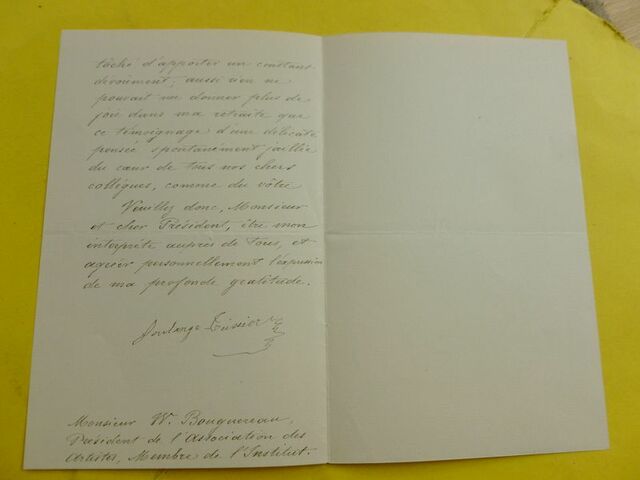 tâché d'apporter un constant
dévoûment; aussi rien ne
pouvait me donner plus de
joie dans ma retraite que
ce témoignage d'une délicate
pensée spontanément jaillie
du cœur de tous nos chers
collègues, comme du vôtre
Veuillez donc, Monsieur
et cher Président, être mon
interprète auprès de tous, et
agréer personnellement l'expression
de ma profonde gratitude.
Soulange Teissier
Monsieur W. Bouguereau,
Président de l'Association des
Artistes, Membre de l'Institut.